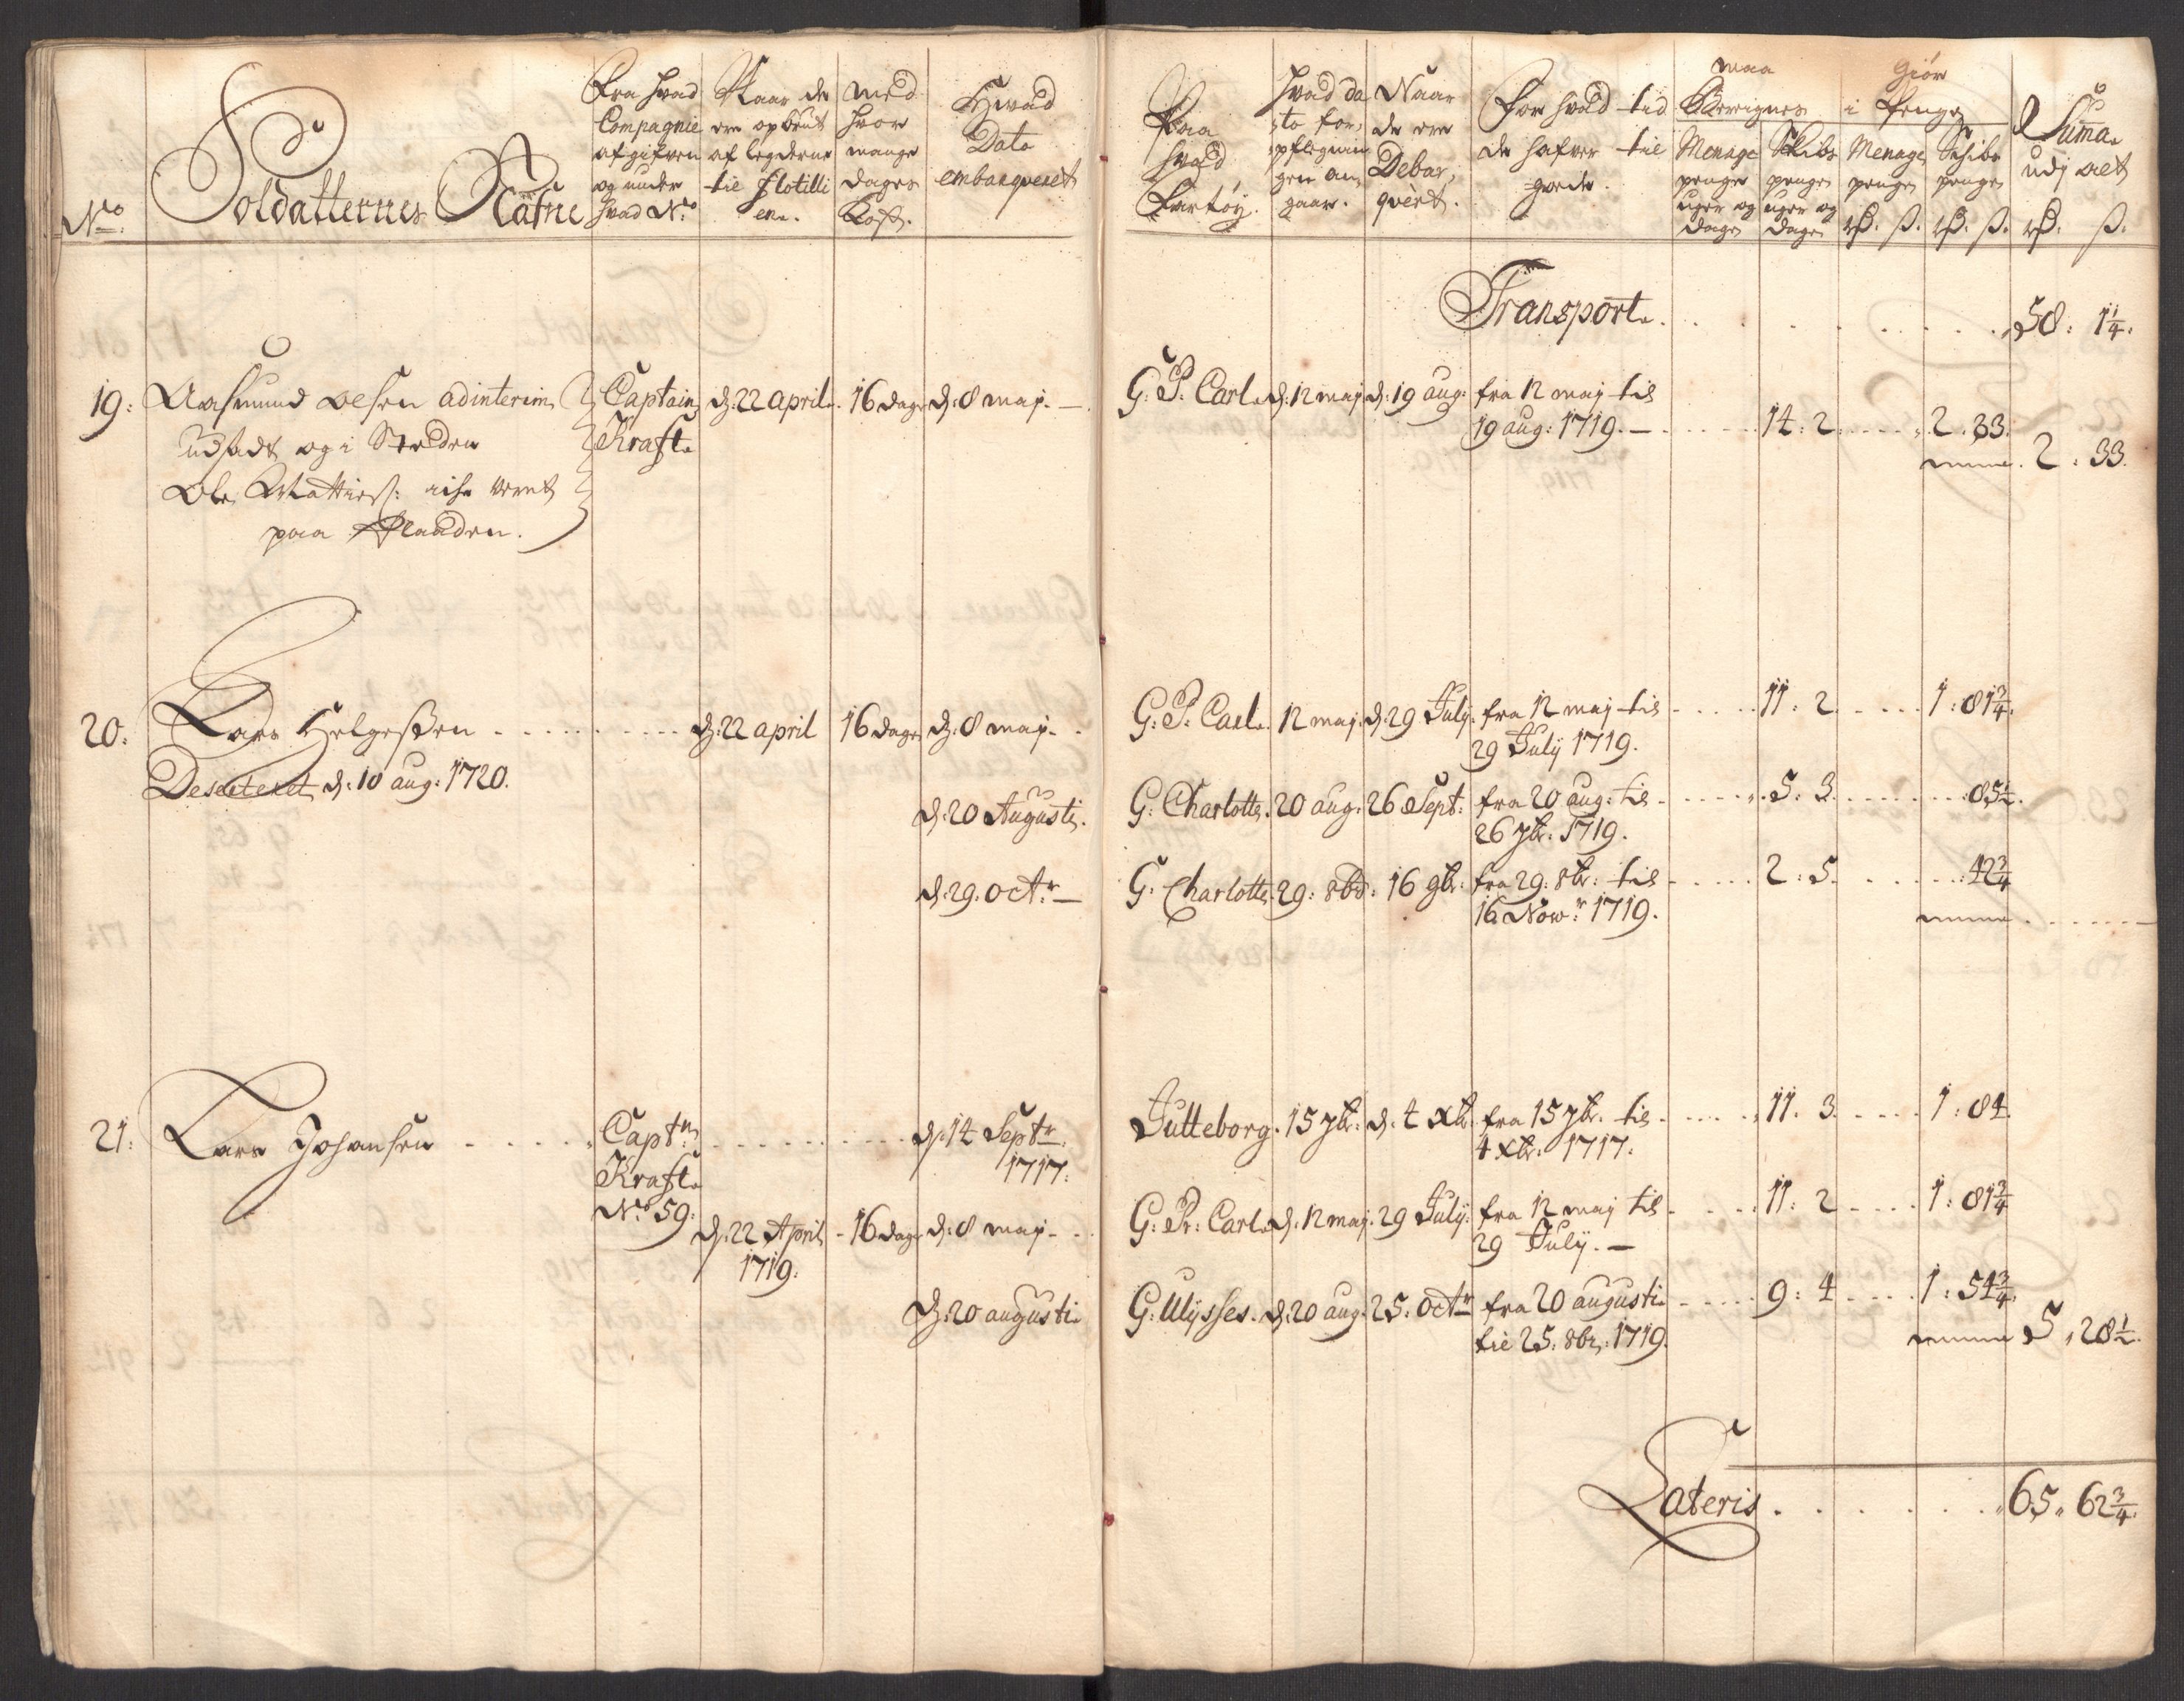 No:
Soldatternes Nafne
Fra hvad
Compagnie
afgifven
og under
hvad No:
Naar de
ere opbrut
af legderne
til Flotilli
en.
med
hvor
mange
dages
Kost.
Hvad
Dato
embarqveret
Paa
hvad
Fartøy.
hvad da
to for,
pflegnin
gen an,
gaar.
Naar
de ere
Debar,
qvèrt.
For hvad tid
de hafver til
gode.
maa
Berrignes
Menage
penge
uger og
dage
Skibs
penge
uger og
dage
Giør
i Penge
Menage
penge
rd. s.
Schibs
penge
rd. s.
Suma
udj alt
rd. s.
Transport. 58: 1 1/4.
19: Aasmund Olsen adinterim Captain d: 22 april. 16 dage d: 8 maj. G: P: Carl. d: 12 maj d: 19 aug: fra 12 maj til
udsadt og i Steden Kraft. 19 aug: 1719. 14: 2 2. 33.
Ole Mattiess: været 2: 33.
paa Flaaden.
20: Lars Helgessen d: 22 april 16 dage d: 8 maj. G: P: Carl. 12 maj. d: 29 Julij. fra 12 maj til 11: 2 1: 81 3/4.
29 Julij 1719.
Deserteret d: 10 aug: 1720.
d: 20 Augusti. G: Charlotte. 20 aug: 26 Sept: fra 20 aug: til 5: 3 85 1/2.
26 7br: 1719.
d: 29. Octr: G: Charlotte. 29: 8br: 16 9br: fra 29: 8br: til 2: 5 42 3/4
16 Nowr: 1719.
21: Lars Johansen Captn: d: 14 Septr: Jutteborg. 15 7br: d: 4 Xbr. fra 15 7br. til 11: 3 1: 84.
Kraft. 1717: 4 xbr: 1717.
No: 59: d: 22 April 16 dage d: 8 maj G: Pr: Carl. d: 12 maj. 29 Julij. fra 12 maj til 11: 2 1: 81 3/4
1719. 29 Julij.
d: 20 augusti. G: Ulysses. d: 20 aug. 25: Octr fra 20 augusti 9: 4 1: 54 3/4.
til 25: 8br: 1719. 5. 28 1/2.
Lateris 65. 62 3/4.